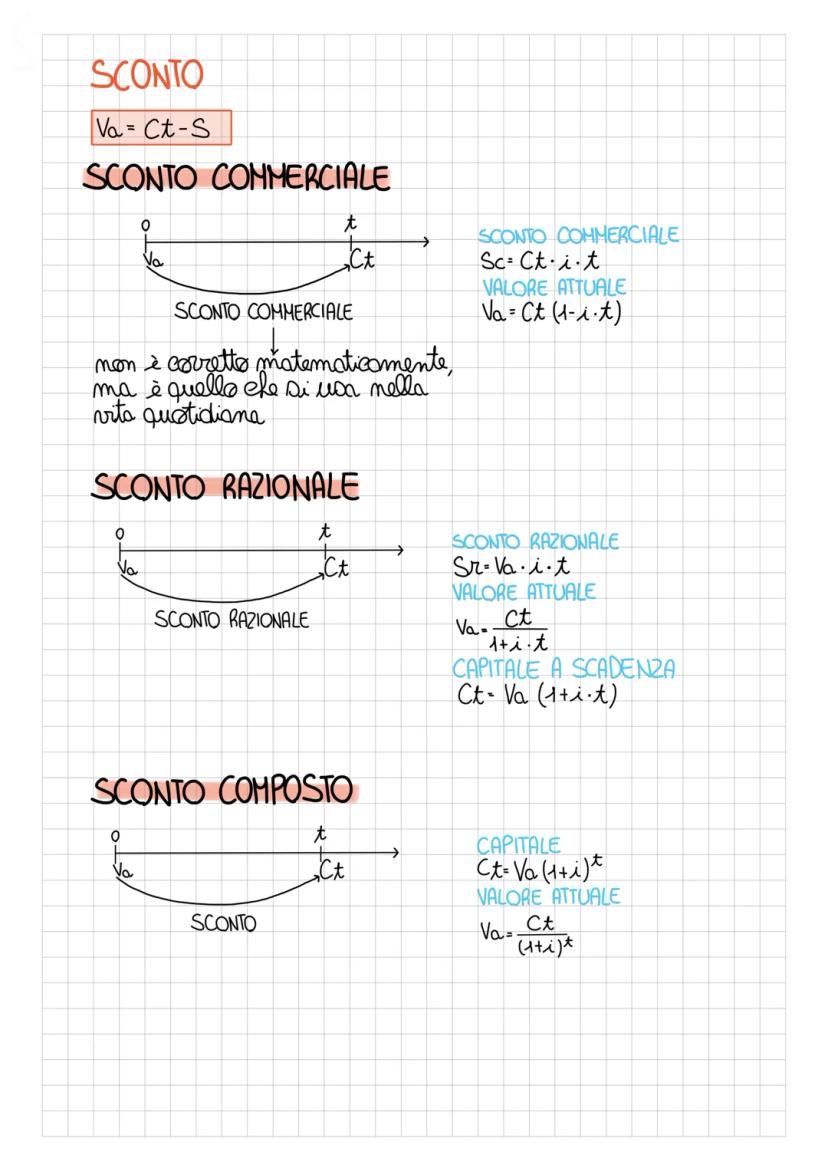 SCONTO
Va = Ct - S
SCONTO COMMERCIALE
0 t
Va Ct
SCONTO COMMERCIALE
non è corretto matematicamente,
ma è quello che si usa nella
vita quotidiana
SCONTO COMMERCIALE
Sc = Ct · i · t
VALORE ATTUALE
Va = Ct (1 - i · t)
SCONTO RAZIONALE
0 t
Va Ct
SCONTO RAZIONALE
SCONTO RAZIONALE
Sr = Va · i · t
VALORE ATTUALE
Va = Ct
1 + i · t
CAPITALE A SCADENZA
Ct = Va (1 + i · t)
SCONTO COMPOSTO
0 t
Va Ct
SCONTO
CAPITALE
Ct = Va (1 + i)^t
VALORE ATTUALE
Va = Ct
(1 + i)^t